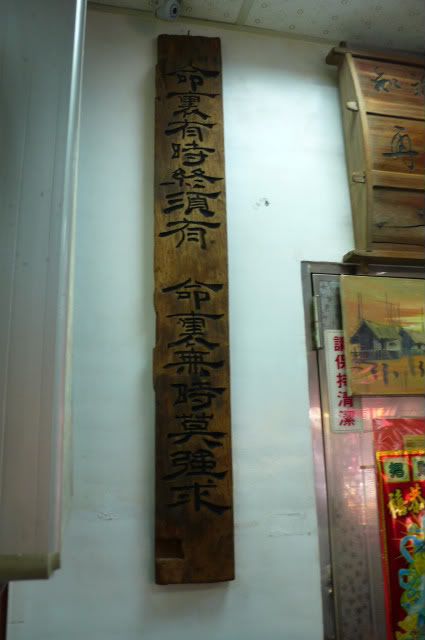 命裏有時終須有
命裏無時莫強求
請保持清潔
知
再